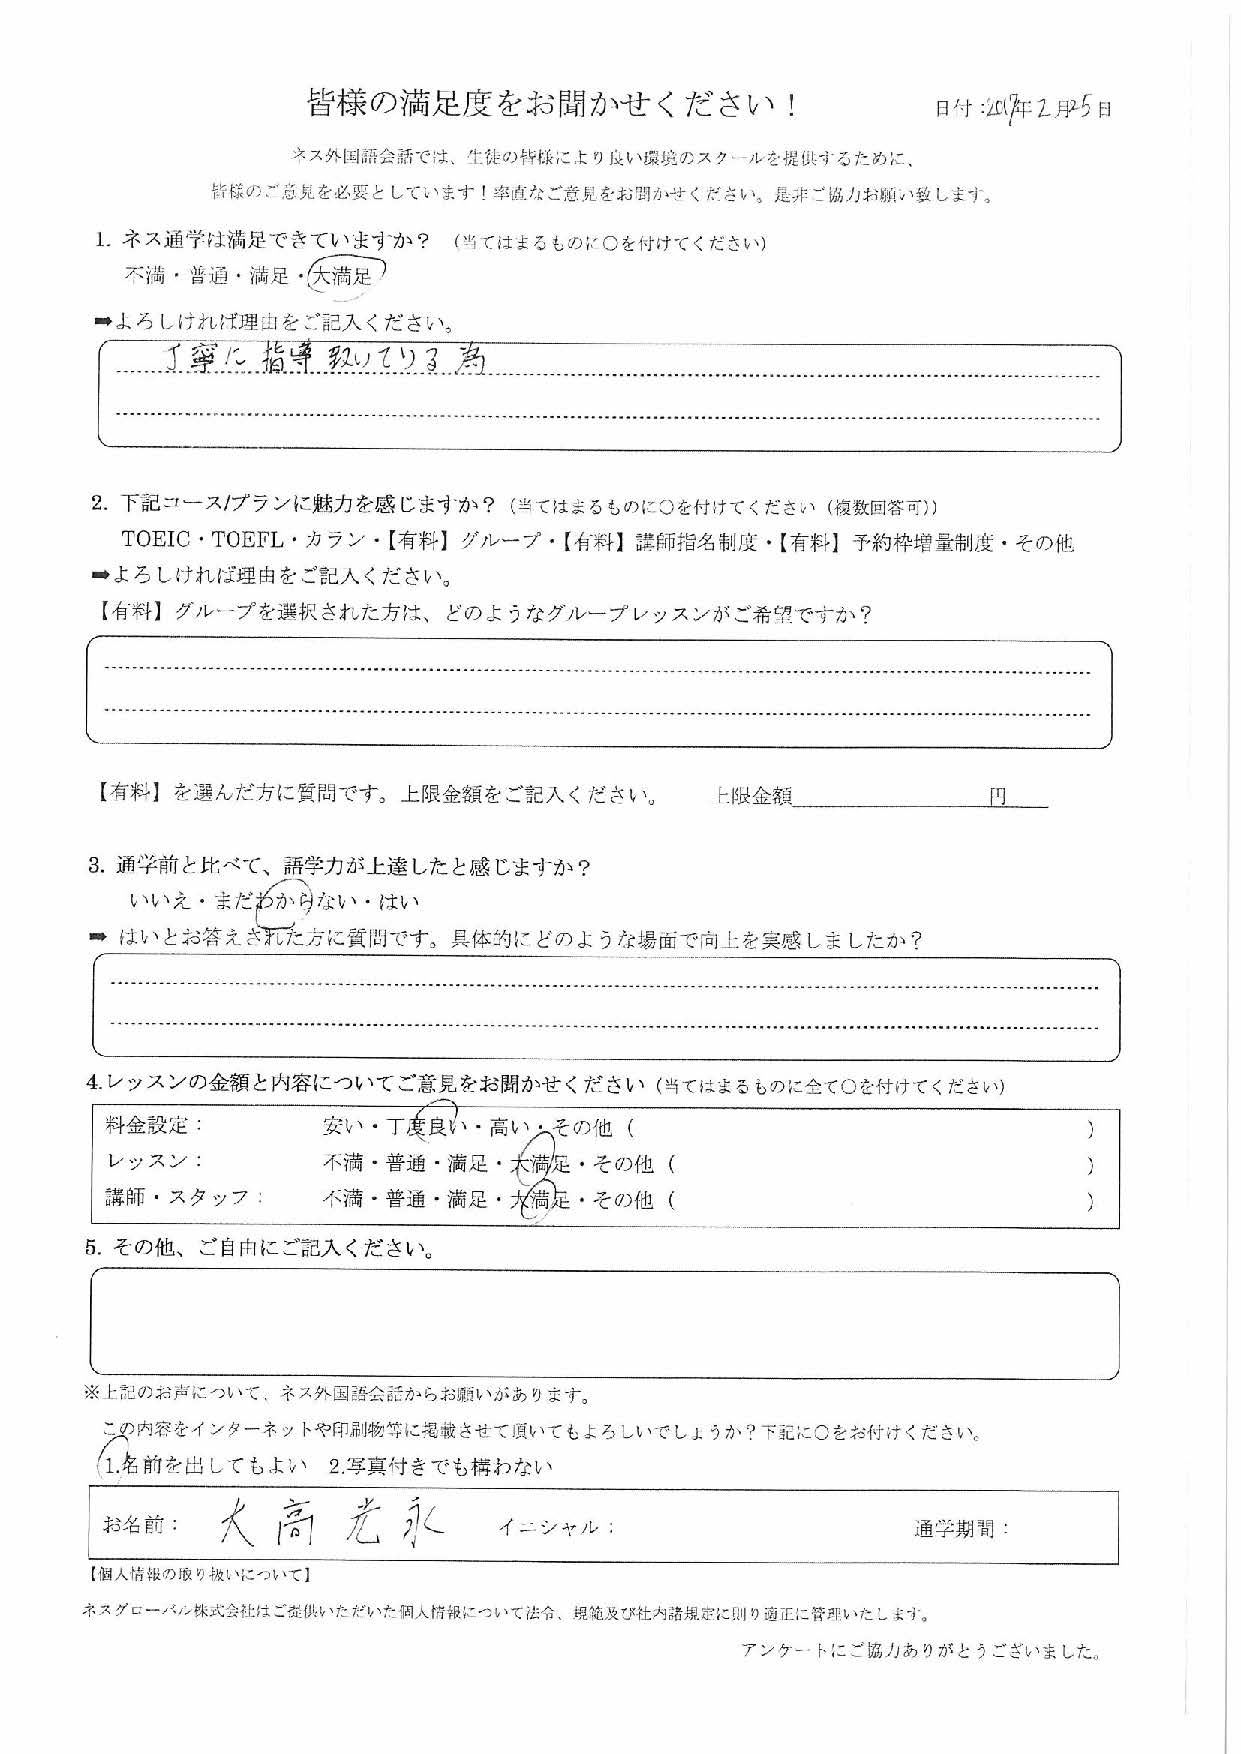 皆様の満足度をお聞かせください！
日付：2017年2月25日
ネス外国語会話では、生徒の皆様により良い環境のスクールを提供するために、
皆様のご意見を必要としています！率直なご意見をお聞かせください。是非ご協力お願い致します。
1. ネス通学は満足できていますか？ （当てはまるものに〇を付けてください）
不満・普通・満足・大満足
➡よろしければ理由をご記入ください。
丁寧に指導 いている為
2. 下記コース/プランに魅力を感じますか？（当てはまるものに〇を付けてください（複数回答可））
TOEIC・TOEFL・カラン・【有料】グループ・【有料】講師指名制度・【有料】予約枠増量制度・その他
➡よろしければ理由をご記入ください。
【有料】グループを選択された方は、どのようなグループレッスンがご希望ですか？
【有料】を選んだ方に質問です。上限金額をご記入ください。 上限金額 円
3. 通学前と比べて、語学力が上達したと感じますか？
いいえ・まだわからない・はい
➡ はいとお答えされた方に質問です。具体的にどのような場面で向上を実感しましたか？
4.レッスンの金額と内容についてご意見をお聞かせください（当てはまるものに全て〇を付けてください）
料金設定： 安い・丁度良い・高い・その他（ ）
レッスン： 不満・普通・満足・大満足・その他（ ）
講師・スタッフ： 不満・普通・満足・大満足・その他（ ）
5. その他、ご自由にご記入ください。
※上記のお声について、ネス外国語会話からお願いがあります。
この内容をインターネットや印刷物等に掲載させて頂いてもよろしいでしょうか？下記に〇をお付けください。
1.名前を出してもよい 2.写真付きでも構わない
お名前： 大高光永 イニシャル： 通学期間：
【個人情報の取り扱いについて】
ネスグローバル株式会社はご提供いただいた個人情報について法令、規範及び社内諸規定に則り適正に管理いたします。
アンケートにご協力ありがとうございました。